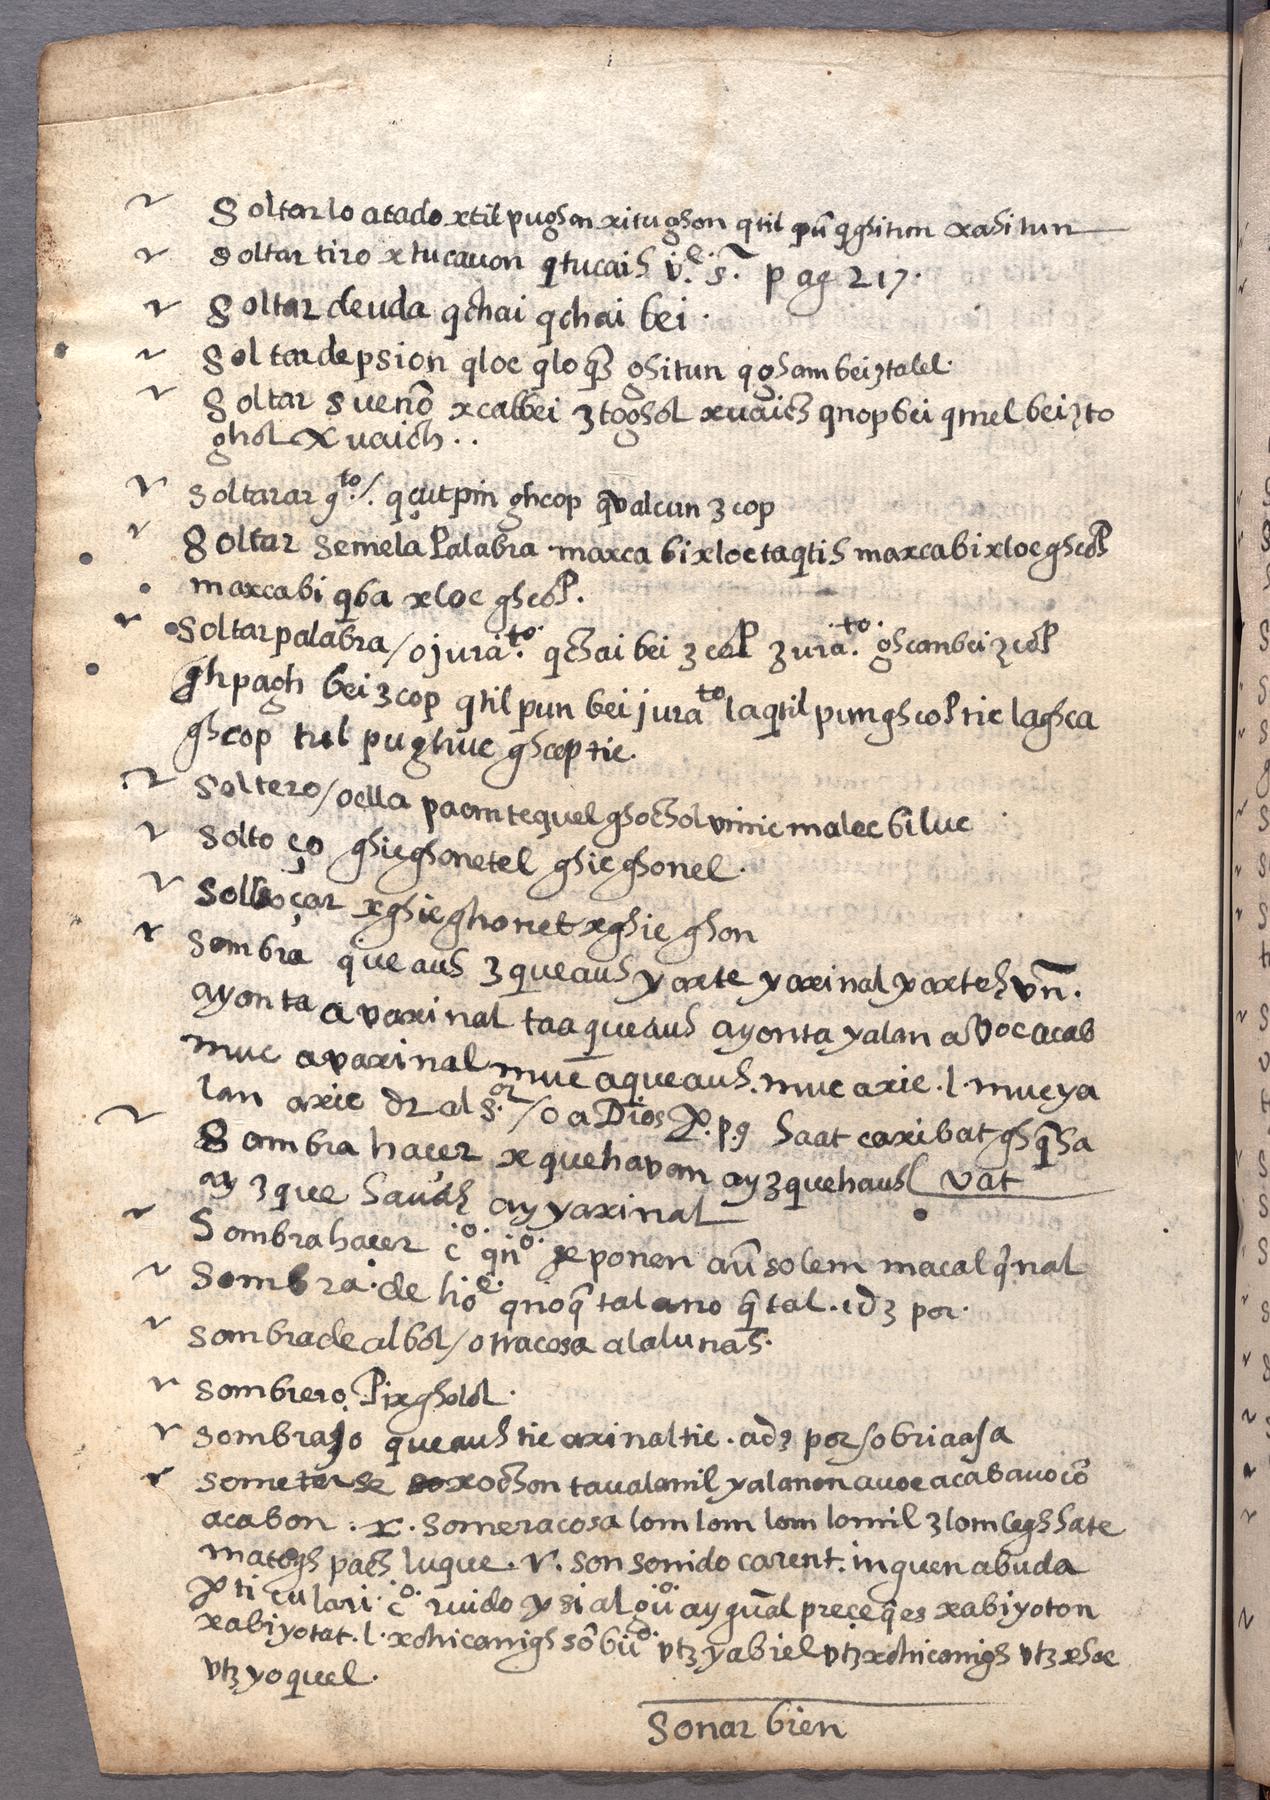 Soltar lo atado xtil pughon xitughon qtil pū qghitun xahitun
soltar tiro xtucauon qtucaih v.l s. pag 217.
Soltar deuda qchai qchai bei.
Soltar de psion qloc qloq3 ghitun qgham bei 3talel.
Soltar sueño xcalbei 3toghol xuaich qnop bei qmel bei 3to
ghol xuaich..
soltar ar gto/. qçutpin ghcop qvalcun 3cop
Soltar seme la Palabra maxca bi xloc taqtih maxcabi xloc ghcoP
maxcabi qba xloc ghcoP.
soltar palabra / o jurato. qchai bei 3coP 3urato. ghcan bei 3coP
ghpagh bei 3cop qtil pun bei jurato laqtil pun ghcoP tic laghca
ghcop tul pughuc ghcop tic.
soltero / o ella paom tequel ghochol vinic malec biluc
solto ço ghieghonetel ghieghonel.
solloçar xghieghonet xghieghon
sombra queauh 3queauh yaxte yaxinal yaxteh vñ.
ayonta avaxinal taaqueauh ayonta yalan avoc acab
muc avaxinal muc aqueauh. muc axic .l. muc ya
lan axic dz al s.or / o a Dios P. p. q haat caxibat ghqha
Sombra haçer xquehavon ay 3quehauh vat
ay 3que hauah ay yaxinal
Sombra hacer co. qno. se ponen aū solem macal q nal
sombra de hoe. qnoq talano q tal. id3 por.
sombra de albol / otra cosa a la luna h.
sombrero Pixgholol.
sombrajo queauh tic axinal tic . ad3 por so briaasa
someterse xochon taualanil yalanon auoc acab auocō
acabon . r. somera cosa lom lom lom lomil 3lom legh hate
matogh pach luque . r. son sonido carent. in guen abuda
Pticulari co. ruido y si algūo. ay gūal preçe q es xabiyoton
xabiyotat .l. xchicanigh sō būo. vt3 yabiel vt3 xchicanigh vt3 xhoc
vt3 yoquel.
Sonar bien